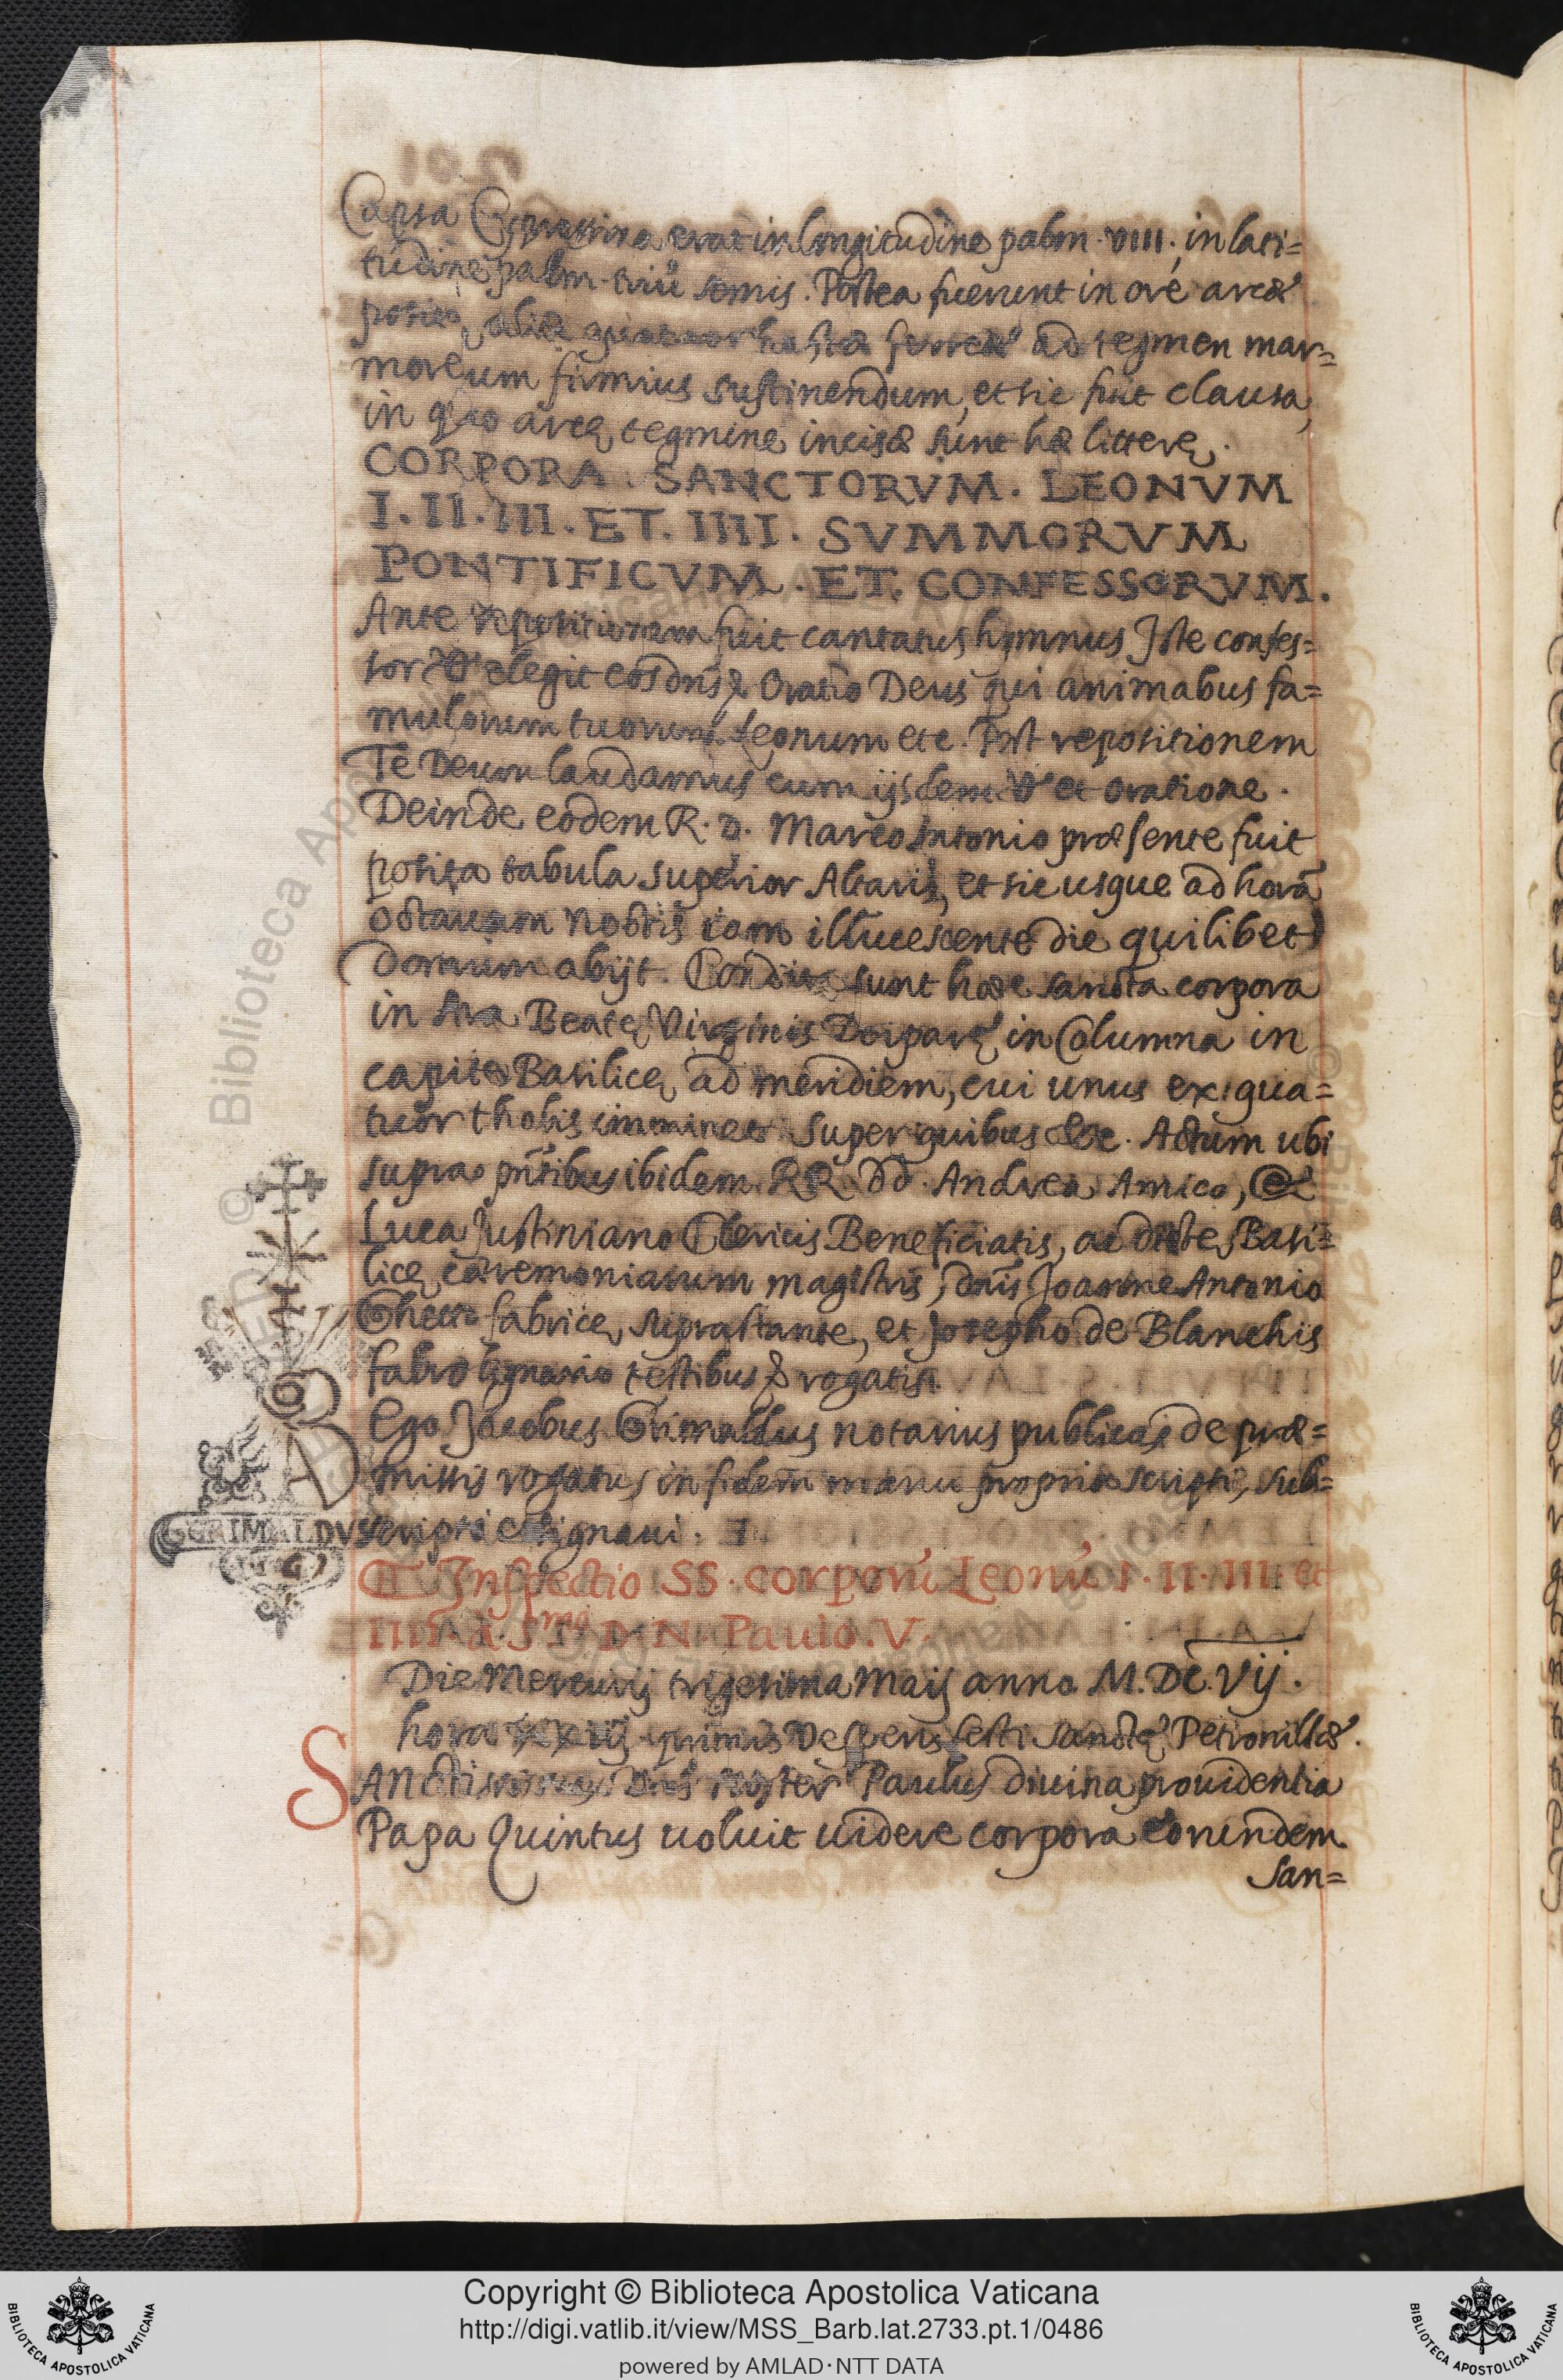 Capsa Cypressina erat in longitudine palm. VIIII, in lati=
tudine palm. triũ semis. Postea fuerunt in ore arcæ
positæ, aliæ quatuor hastæ ferreæ ad tegmen mar=
moreum firmius sustinendum, et sic fuit clausa,
in quo arcę tegmine incisæ sunt hæ litterę.
CORPORA. SANCTORVM. LEONVM
I. II. III. ET. IIII. SVMMORVM
PONTIFICVM. ET. CONFESSORVM.
Ante repositionem fuit cantatus hymnus Iste confes=
sor elegit eos dnš Oratio Deus qui animabus fa=
mulorum tuorum Leonum etc. Post repositionem
Te Deum laudamus cum ijsdem et oratione.
Deinde eodem R. D. Marco Antonio præsente fuit
posita tabula superior Altaris, et sic usque ad horã
octauam noctis iam illucescente die quilibet
domum abijt. Condita sunt hæc sancta corpora
in Beatę Virginis Deiparę in Columna in
capite Basilicę ad meridiem, cui unus ex qua=
tuor tholis imminet. Super quibus etc. Actum ubi
supra pñtibus ibidem RR. dd. Andrea Amico, et
Luca Justiniano Clericis Beneficiatis, ac dictę Basi=
licę cæremoniarum magistris, dnis Joanne Antonio
fabricę suprastante, et Josepho de Blanchis
fabro lignario testibus rogatis.
Ego Jacobus Grimaldus notarius publicus de præ=
missis rogatus in fidem manu propria scripsi, sub=
GRIMALDVS
scripsi et signaui.
Inspectio SS. corporũ Leonũ I. II. III. et
IIII. a S.mo D. N. Paulo. V.
Die Mercurij trigesima Maij anno M. DC. Vij.
hora primis Vesperis festi Sanctę Petronillæ.
SAnctissimus Dñs noster Paulus diuina prouidentia
Papa Quintus uoluit uidere corpora eorundem
San=
© Biblioteca Apostolica Vaticana
Copyright © Biblioteca Apostolica Vaticana
http://digi.vatlib.it/view/MSS_Barb.lat.2733.pt.1/0486
powered by AMLAD·NTT DATA
BIBLIOTECA APOSTOLICA VATICANA
BIBLIOTECA APOSTOLICA VATICANA